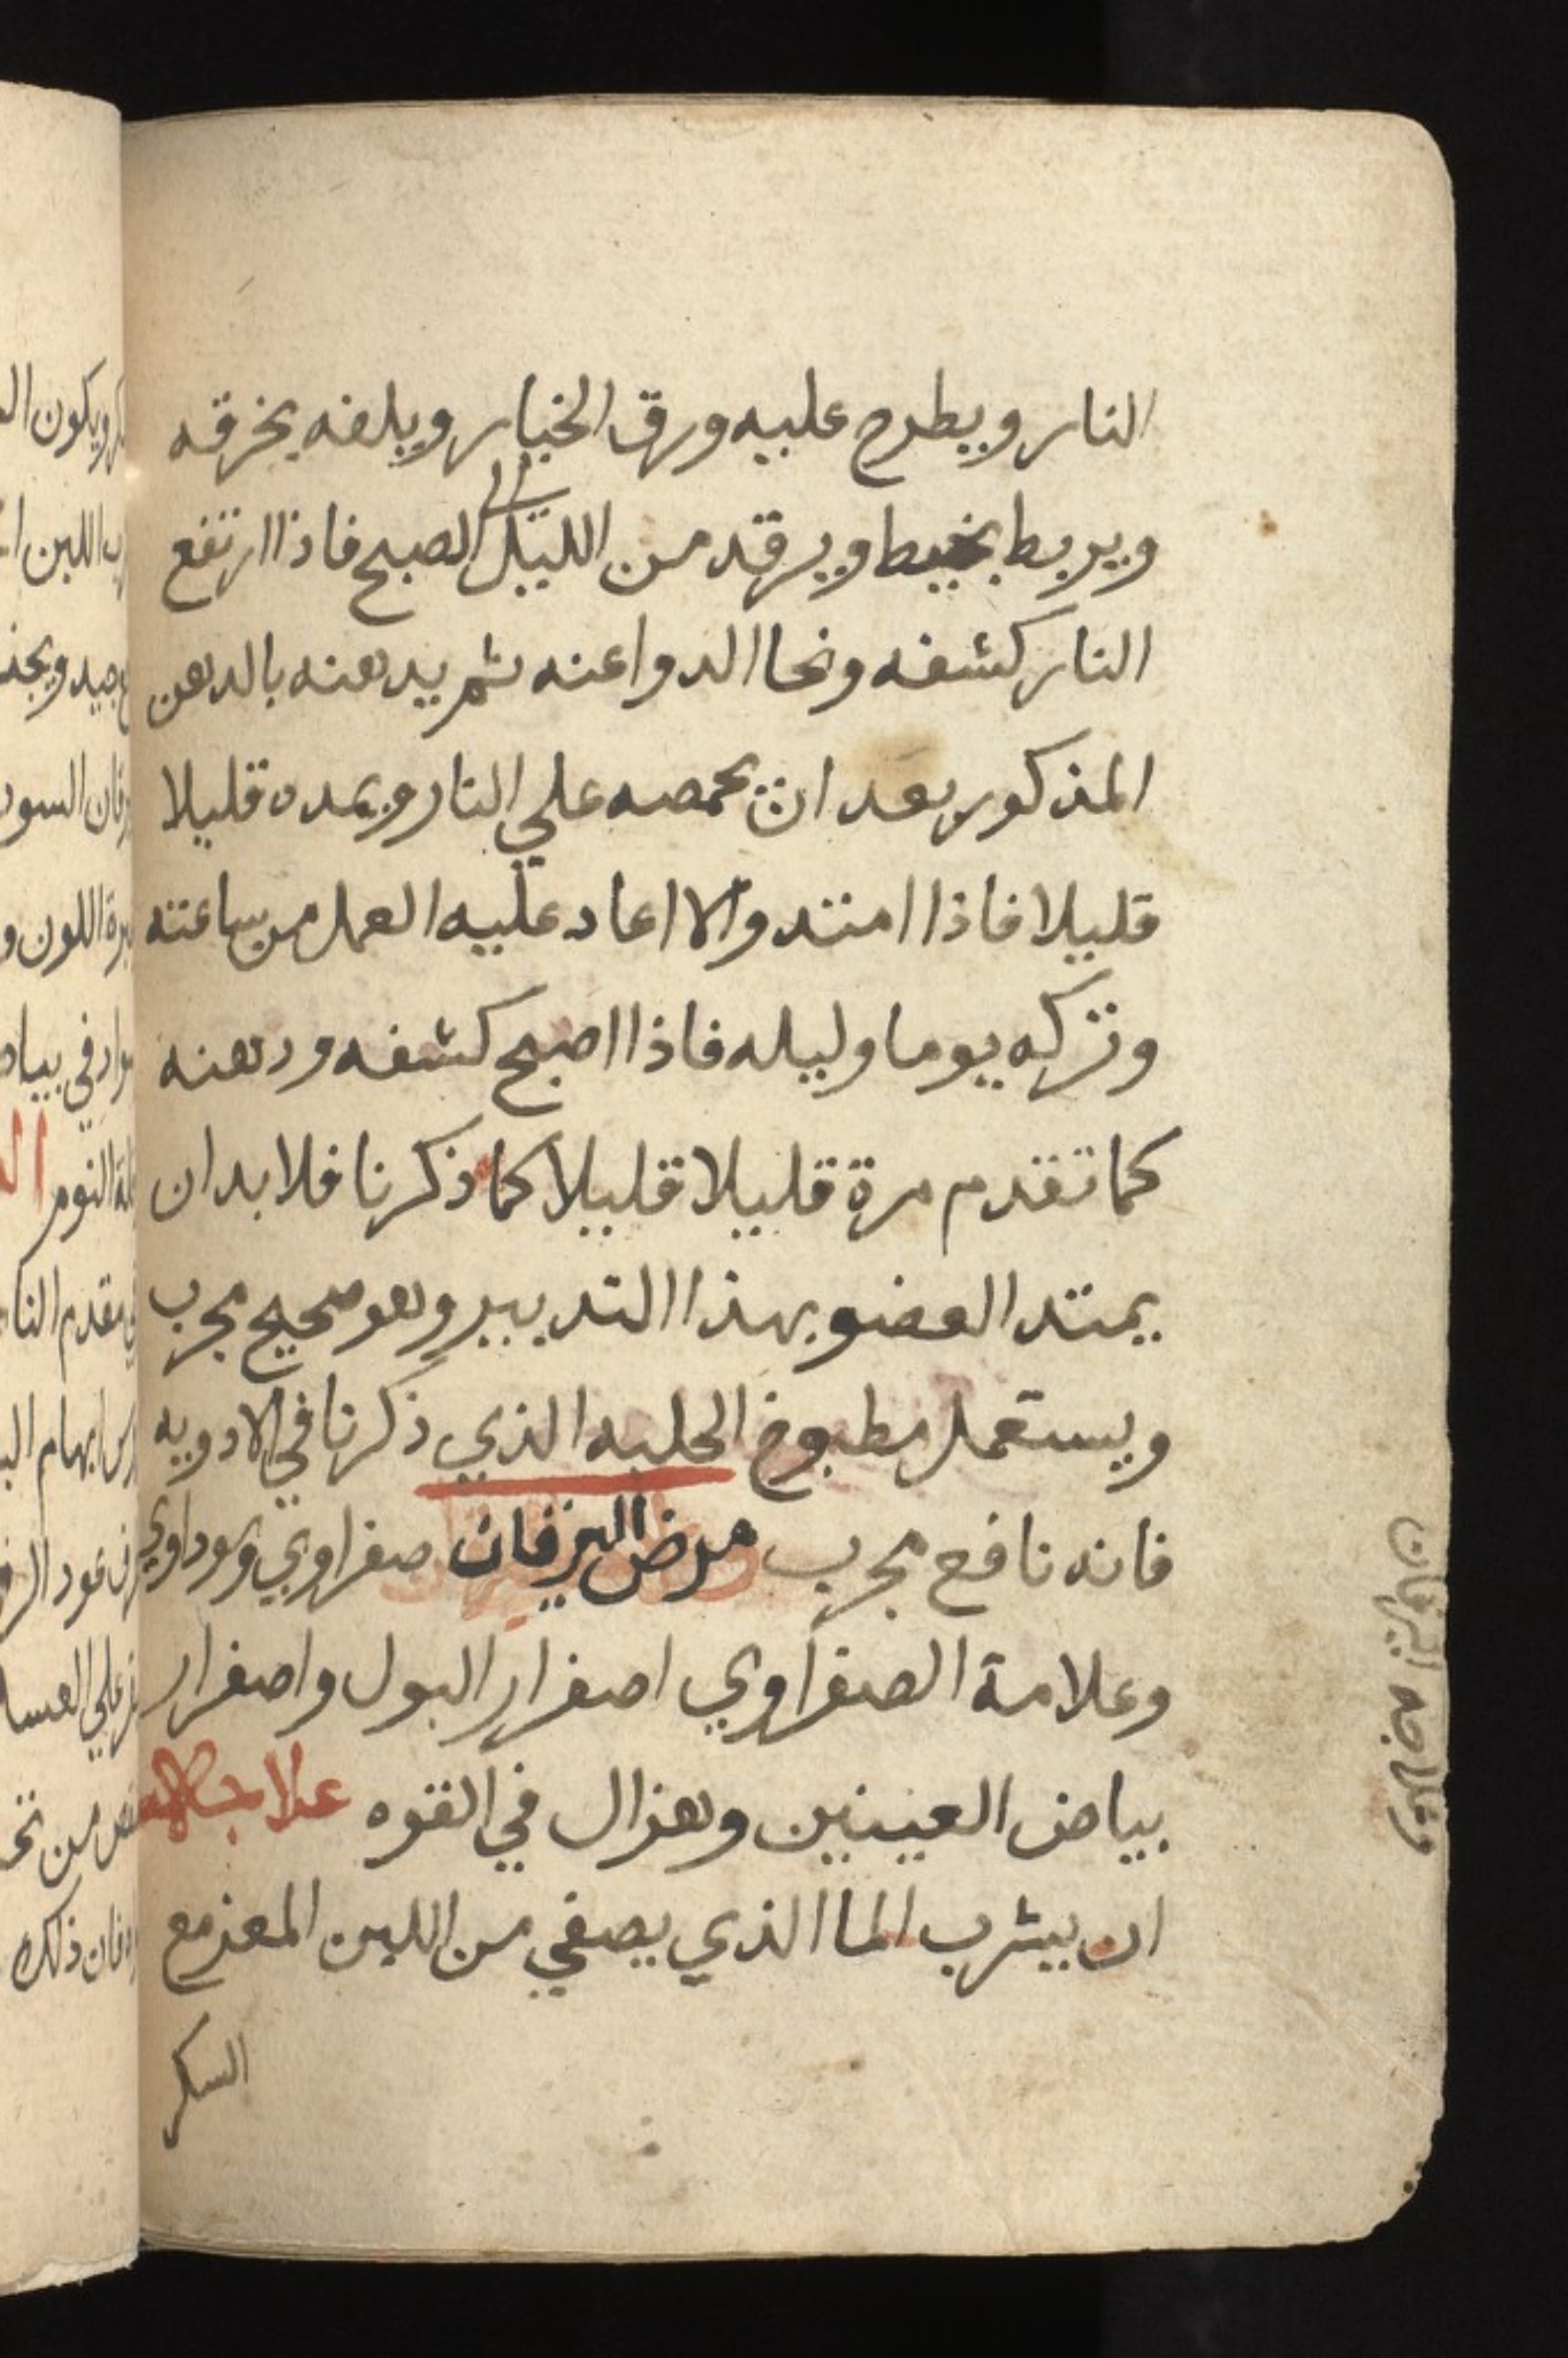 النار ويطرح عليه ورق الخيار ويلفه بخرقه
ويربط بخيط ويرقد من الليل الى الصبح فاذا ارتفع
النار كشفه ونحا الدوا عنه ثم يدهنه بالدهن
المذكور بعد ان يحمصه علي النار ويمده قليلا
قليلا فاذا امتد والا اعاد عليه العمل من ساعته
وتركه يوما وليله فاذا اصبح كشفه ودهنه
كما تقدم مرة قليلا قليلا كما ذكرنا فلا بد ان
يمتد العضو بهذا التدبير وهو صحيح مجرب
ويستعمل مطبوخ الحلبه الذي ذكرنا في الادويه
فانه نافع مجرب مرض اليرقان صفراوي وسوداوي
وعلامة الصفراوي اصفرار البول واصفرار
بياض العينين وهزال في القوه علاجه
ان يشرب الما الذي يصفي من اللبن المعز مع
السكر